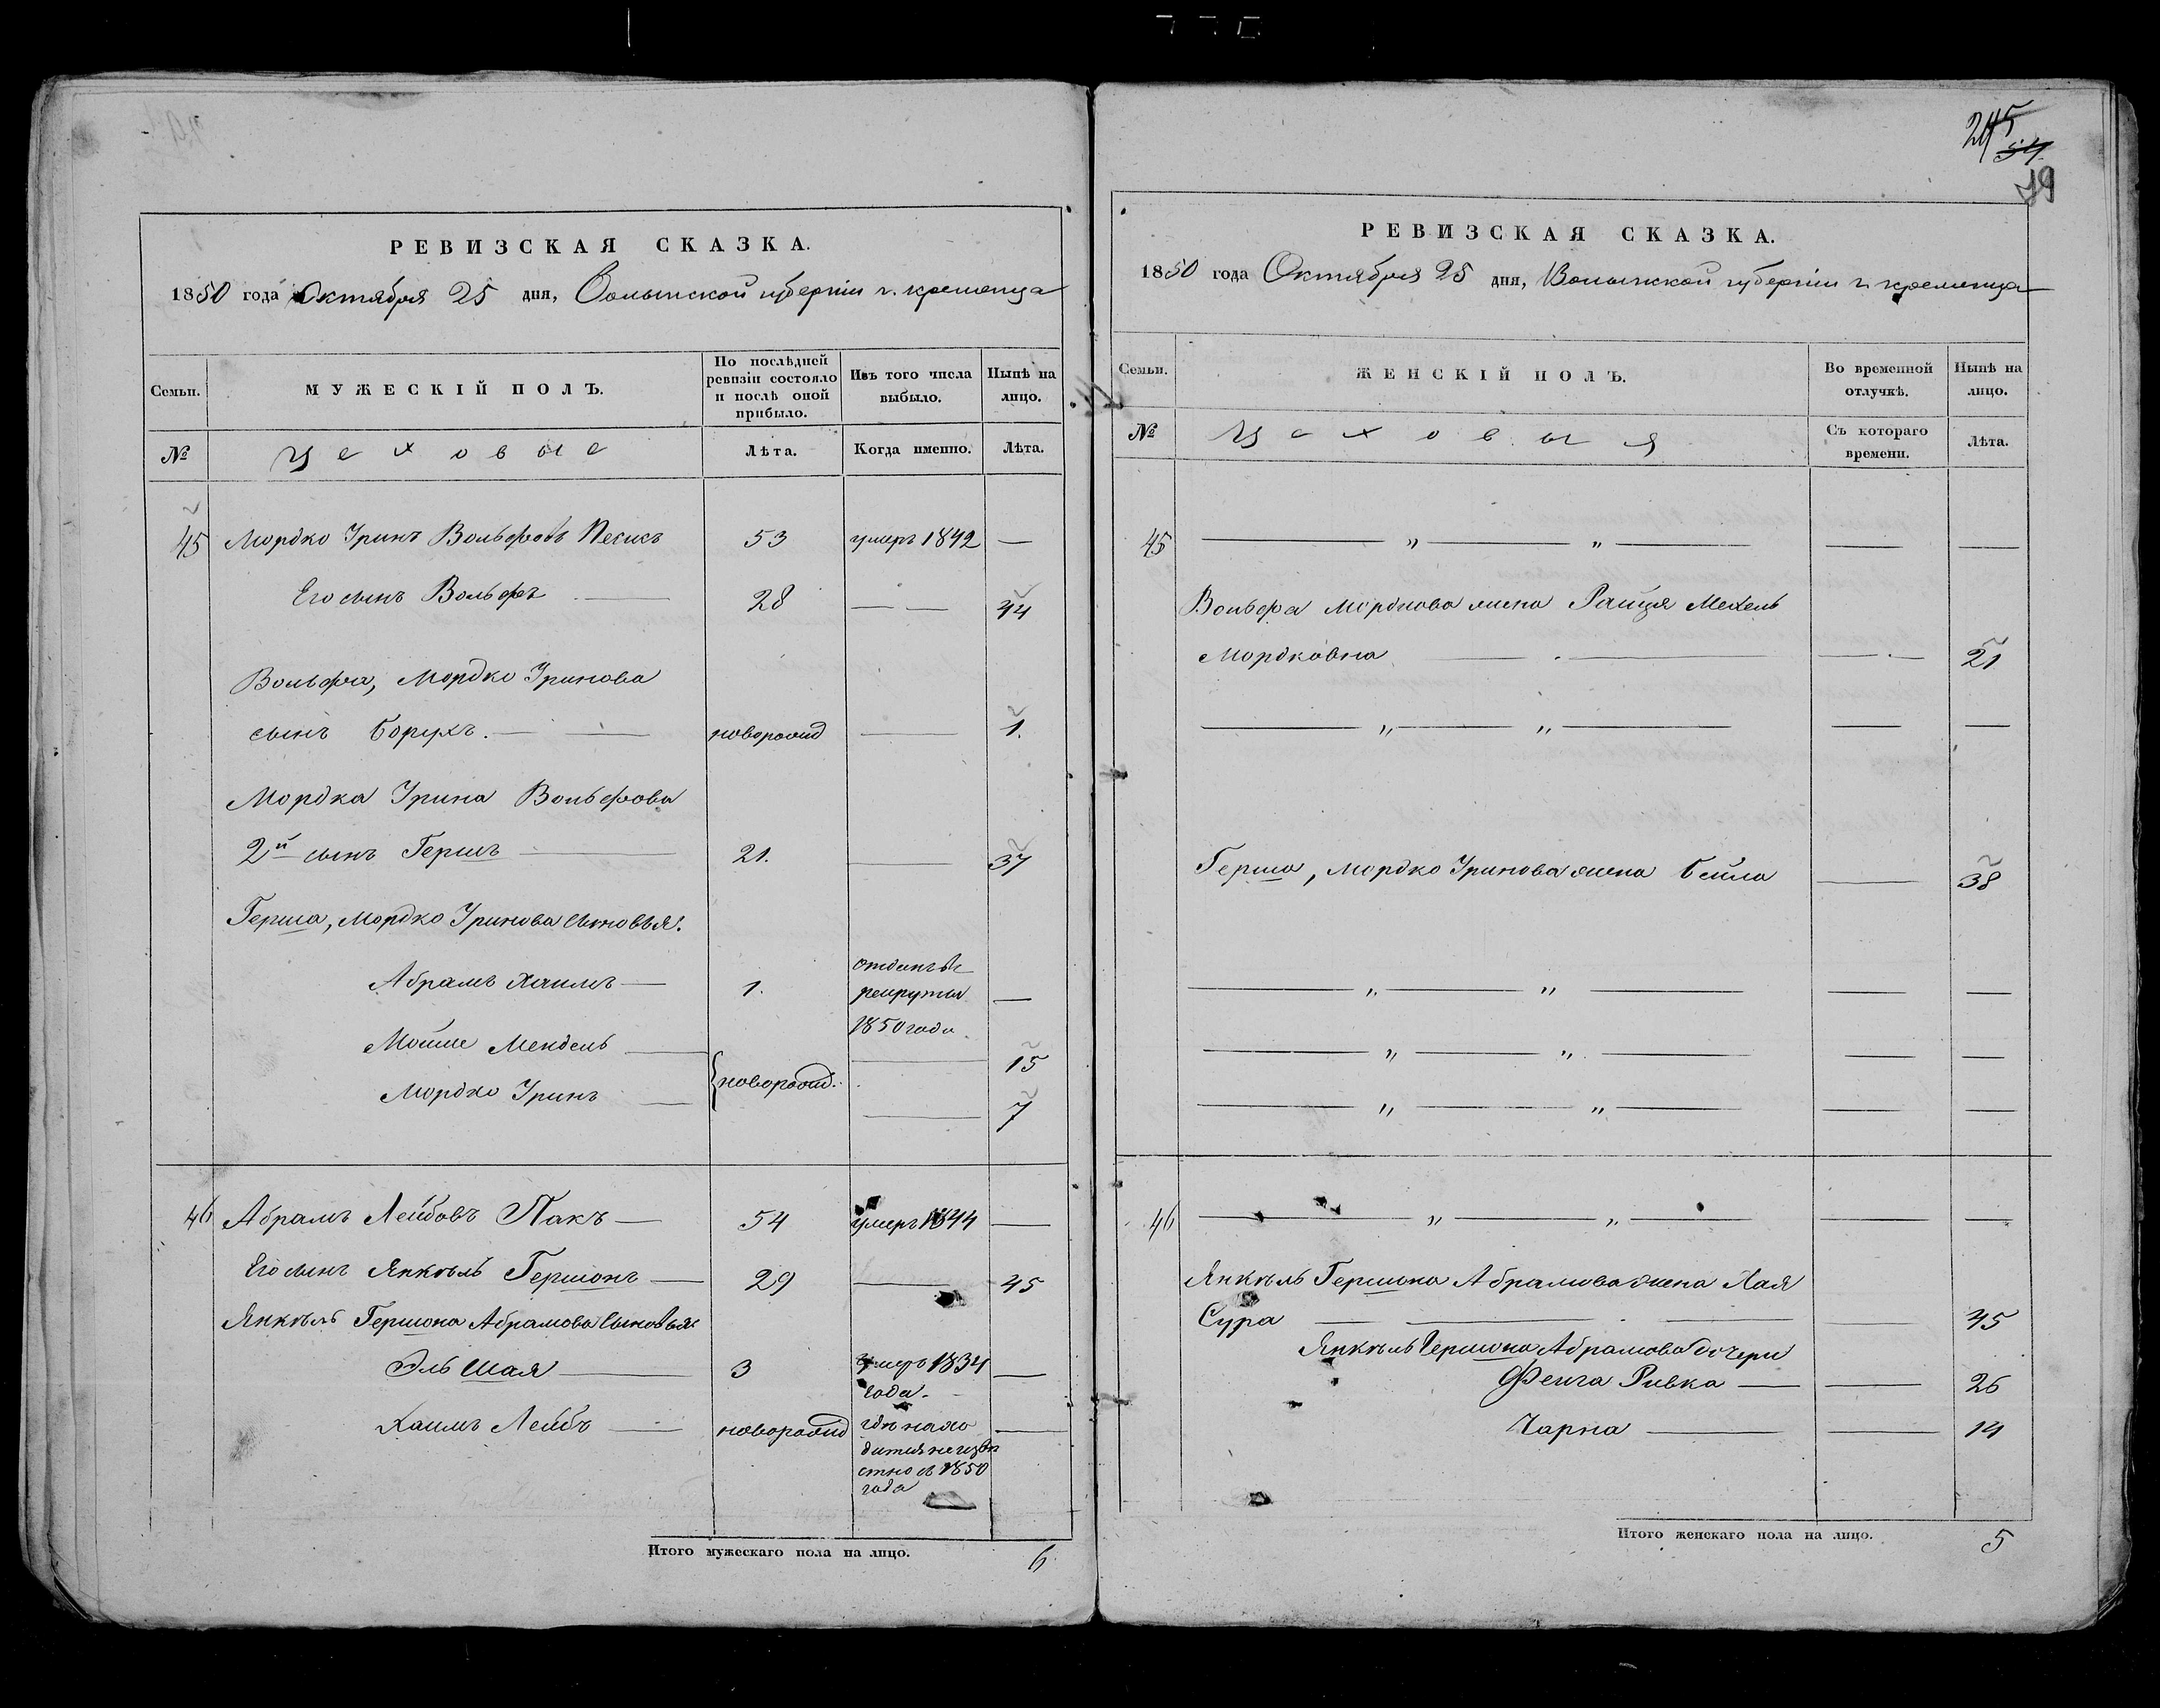 РЕВИЗСКАЯ СКАЗКА.
1850 года Октября 25 дня, Волынской губерніи г. кременца
Семьи.
МУЖЕСКІЙ ПОЛЪ.
По послѣдней ревизіи состояло и послѣ оной прибыло.
Изъ того числа выбыло.
Нынѣ на лицо.
№
Цеховые
Лѣта.
Когда именно.
Лѣта.
45 Мордко Іринъ Вольфовъ 53 умеръ 1842 —
Его сынъ Вольфъ — 28 — — 44
Вольфа, Мордко Іринова
сынъ Борухъ. — — новорожд — 1.
Мордка Ірина Вольфова
2й сынъ Гершъ — 21. — 37
Герша, Мордко Іринова сыновья:
Абрамъ Хаимъ — 1. отданъ въ рекруты 1850 года —
Мошие Мендель — новорожд. — 15
Мордко Іринъ — — 7
46 Абрамъ Лейбовъ Пакъ — 54 умеръ 1844 —
Его сынъ Янкель Гершонъ — 29 — 45
Янкель Гершона Абрамова сыновья:
Эль Шая — 3 умеръ 1834 года. —
Хаимъ Лейбъ — новорожд гдѣ нахо
дится неизвѣ
стно съ 1850
года —
Итого мужескаго пола на лицо. 6
245
54
79
РЕВИЗСКАЯ СКАЗКА.
1850 года Октября 25 дня, Волынской губерніи г. кременца
Семьи.
ЖЕНСКІЙ ПОЛЪ.
Во временной отлучкѣ.
Нынѣ на лицо.
№
Цеховыя
Съ котораго времени.
Лѣта.
45 — „ — „ — — —
Вольфа Мордкова жена Райця Мехель
Мордковна — . — — . — 21
— „ — „ — — —
Герша, Мордко Іринова жена Бейла — 38
— „ — „ — — —
— „ — „ — — —
— „ — „ — — —
46 — „ — „ — — —
Янкель Гершона Абрамова жена Хая
Сура — — — — 45
Янкель Гершона Абрамова дочери
Фейга Ривка — — 26
Чарна — — 14
Итого женскаго пола на лицо. 5